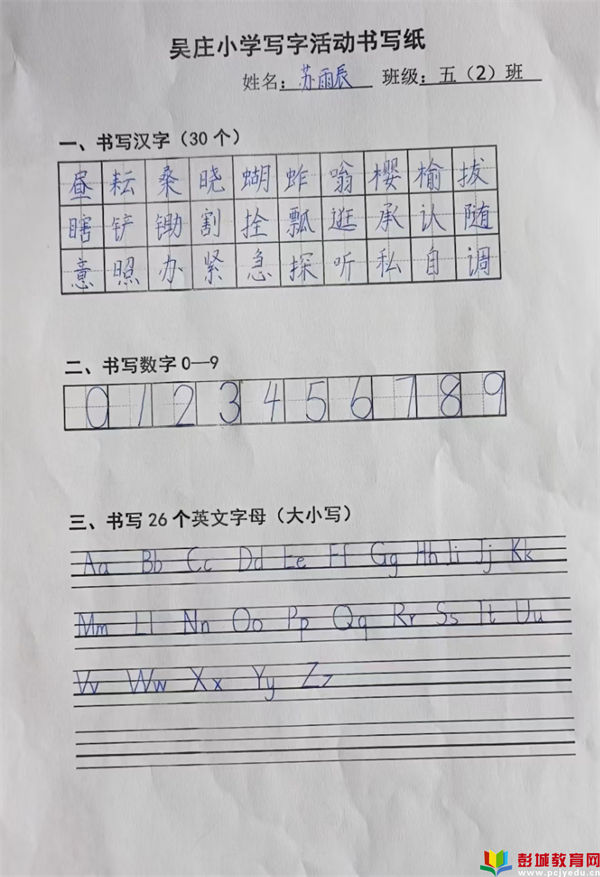 吴庄小学写字活动书写纸
姓名：苏雨辰 班级：五（2）班
一、书写汉字（30个）
昼耘桑晓蝴蚱嗡樱榆拔
瞎铲锄割拴瓢逛承认随
意照办紧急探听私自调
二、书写数字0—9
0 1 2 3 4 5 6 7 8 9
三、书写26个英文字母（大小写）
Aa Bb Cc Dd Ee Ff Gg Hh Ii Jj Kk
Mm Ll Nn Oo Pp Qq Rr Ss Tt Uu
Vv Ww Xx Yy Zz
彭城教育网
www.pcjyedu.cn